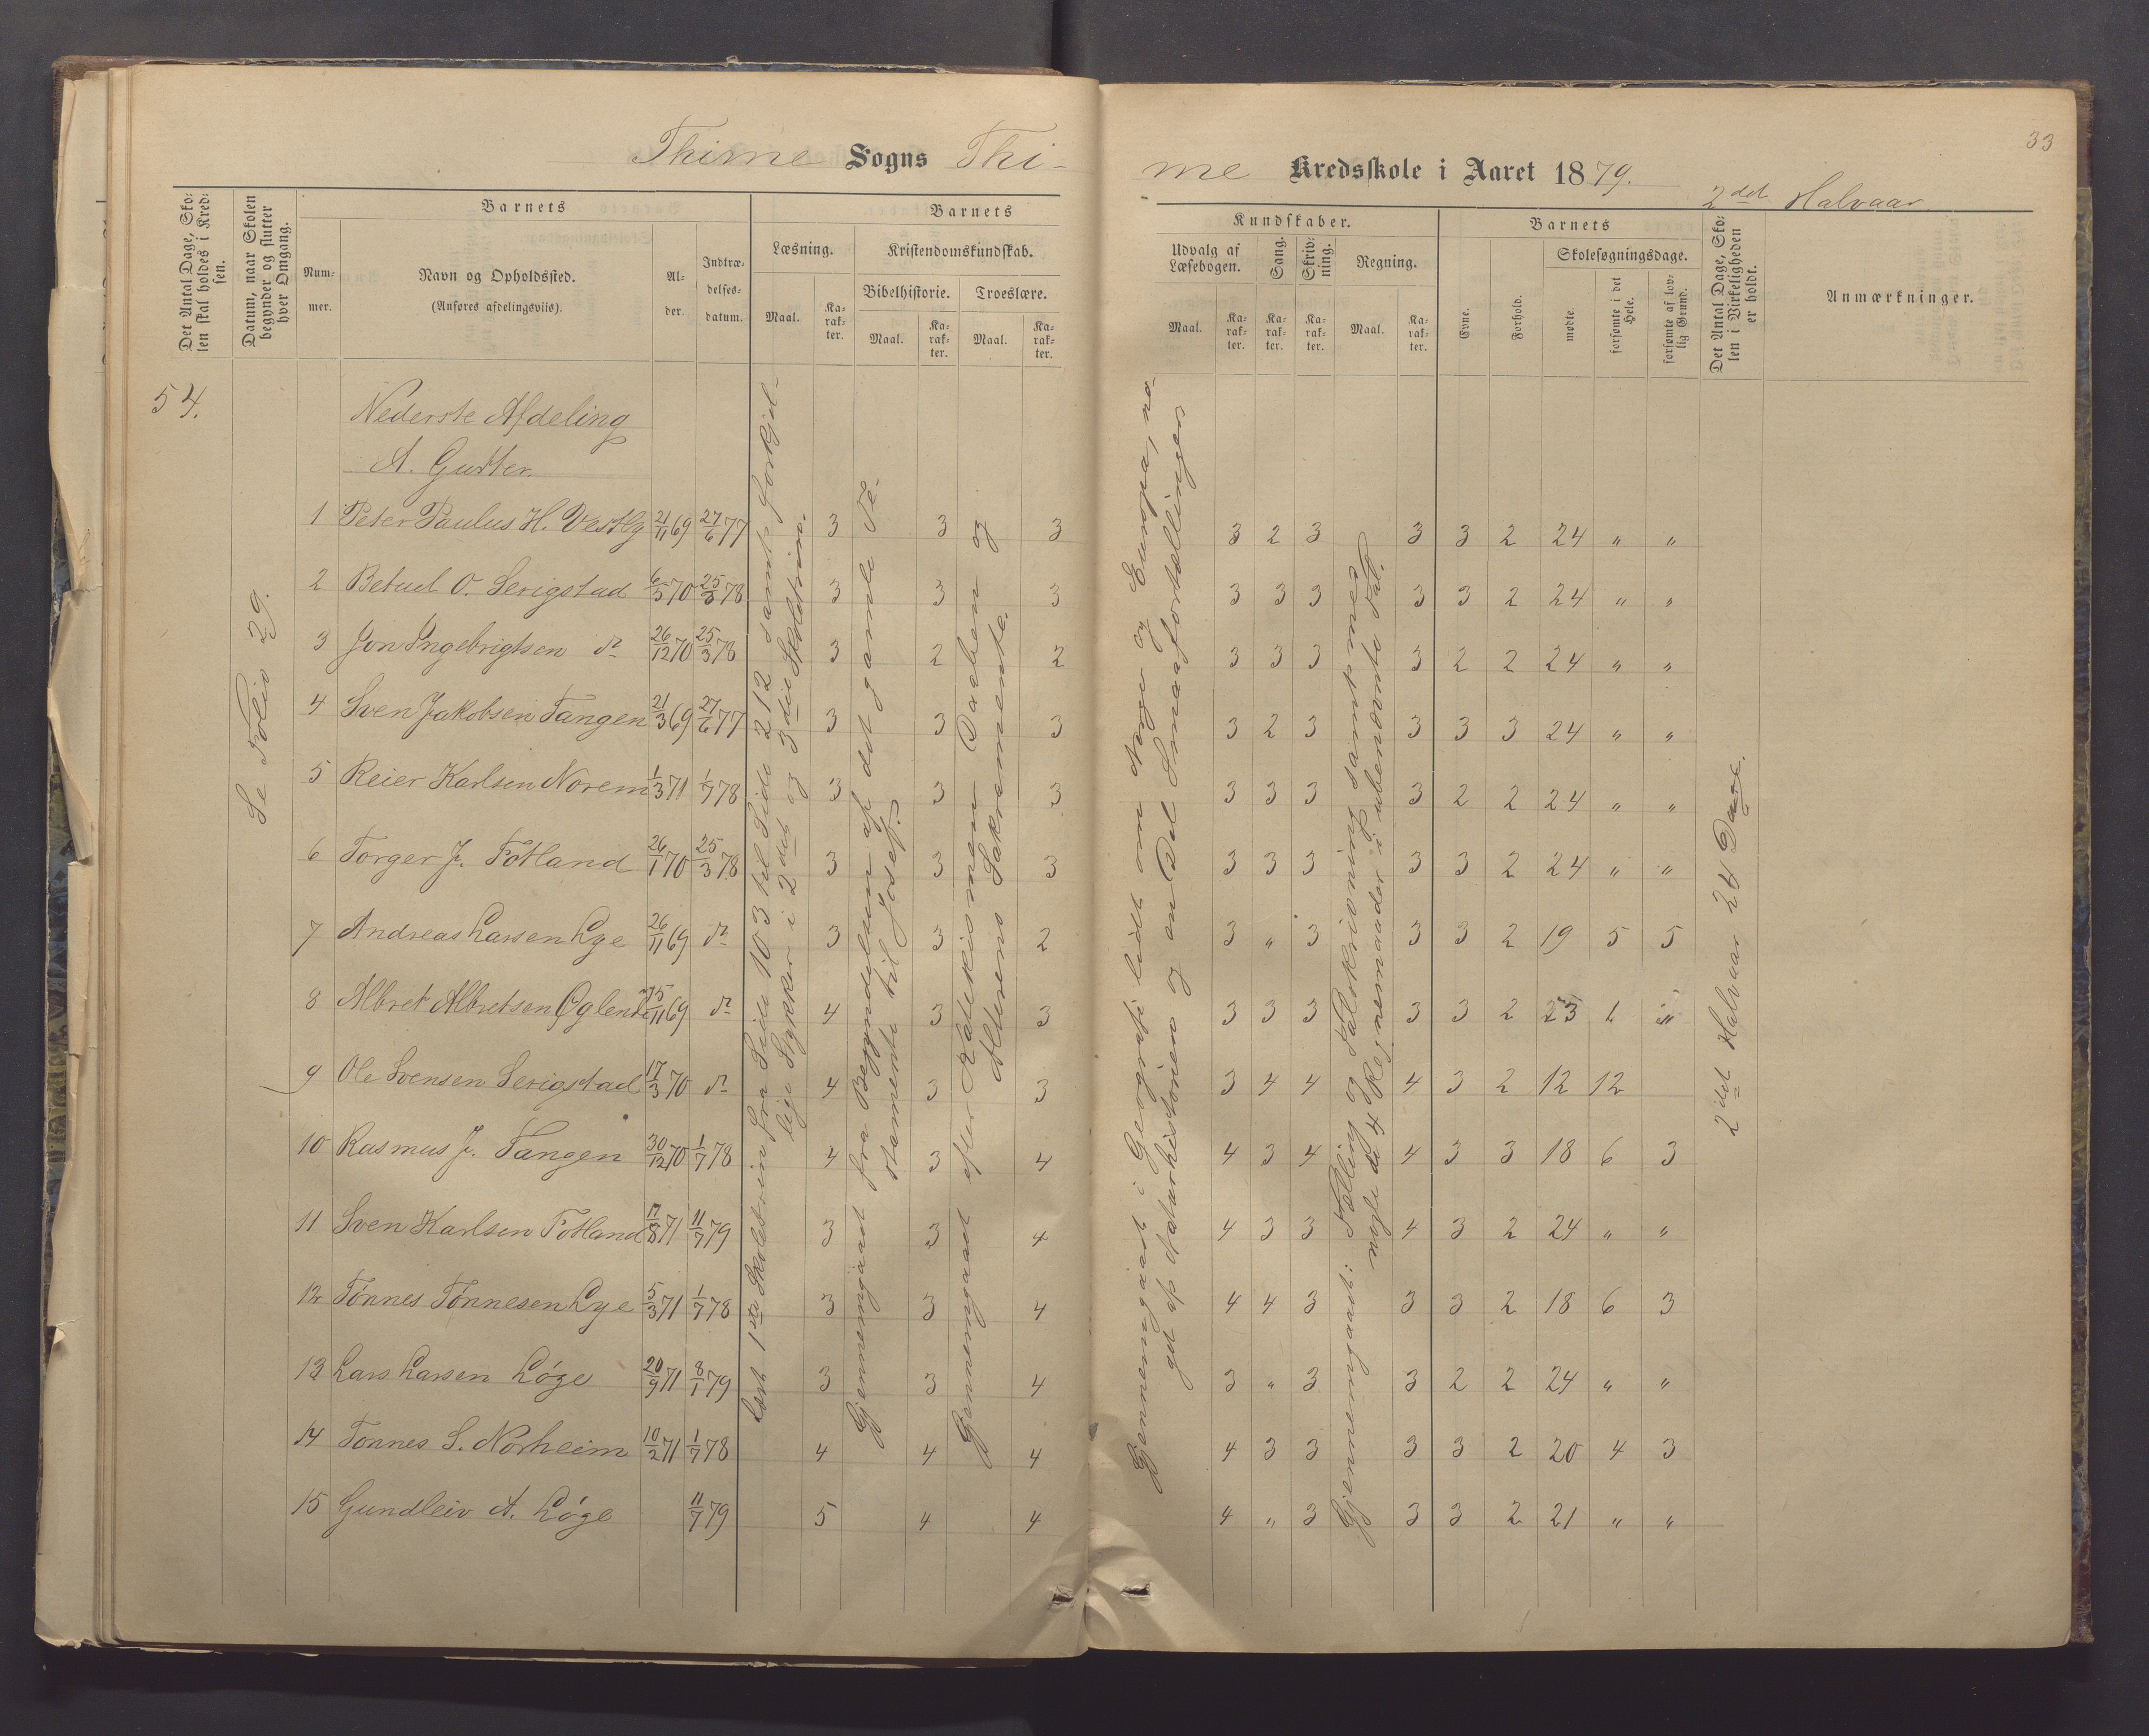 33
Thime Sogns Thi-
me Kredsskole i Aaret 1879.
2det Halvaar
Det Antal Dage, Sko-
len skal holdes i Kred-
sen.
Datum, naar Skolen
begynder og slutter
hver Omgang.
Barnets
Num-
mer.
Navn og Opholdssted.
(Anføres afdelingsviis).
Al-
der.
Indtræ-
delses-
datum.
Barnets
Læsning.
Maal.
Ka-
rak-
ter.
Kristendomskundskab.
Bibelhistorie.
Maal.
Ka-
rak-
ter.
Troeslære.
Maal.
Ka-
rak-
ter.
Kundskaber.
Udvalg af
Læsebogen.
Maal.
Ka-
rak-
ter.
Sang.
Ka-
rak-
ter.
Skriv-
ning.
Ka-
rak-
ter.
Regning.
Maal.
Ka-
rak-
ter.
Barnets
Evne.
Forhold.
Skolesøgningsdage.
mødte.
forsømte i det
Hele.
forsømte af lov-
lig Grund.
Det Antal Dage, Sko-
len i Virkeligheden
er holdt.
Anmærkninger.
54.
Se Folio 29.
Nederste Afdeling
A. Gutter.
1 Peter Paulus H. Vestly 21/11 69 27/6 77 3 3 3 3 2 3 3 3 2 24 " "
2 Betuel O. Serigstad 6/5 70 25/3 78 3 3 3 3 3 3 3 3 2 24 " "
3 Jon Ingebrigtsen do 26/12 70 25/3 78 3 2 2 3 3 3 3 2 2 24 " "
4 Sven Jakobsen Tangen 21/3 69 27/6 77 3 3 3 3 2 3 3 3 3 24 " "
5 Reier Karlsen Norem 1/3 71 1/7 78 3 3 3 3 3 3 3 2 2 24 " "
6 Torger J. Fotland 26/1 70 25/3 78 3 3 3 3 3 3 3 3 2 24 " "
7 Andreas Larsen Lye 26/11 69 do 3 3 2 3 " 3 3 3 2 19 5 5
8 Albret Albretsen Øglend 25/11 69 do 4 3 3 3 3 3 3 3 2 23 1 "
9 Ole Svensen Serigstad 17/3 70 do 4 3 3 3 4 4 4 3 2 12 12
10 Rasmus J. Tangen 30/12 70 1/7 78 4 3 4 4 3 4 4 3 3 18 6 3
11 Sven Karlsen Fotland 17/8 71 11/7 79 3 3 4 4 3 3 4 3 2 24 " "
12 Tønnes Tønnesen Lye 5/3 71 1/7 78 3 3 4 4 4 3 3 3 2 18 6 3
13 Lars Larsen Løge 20/9 71 8/1 79 3 3 4 3 " 3 3 2 2 24 " "
14 Tonnes S. Norheim 10/2 71 1/7 78 4 4 4 4 3 3 3 3 2 20 4 3
15 Gundleiv A. Løge 11/7 79 5 4 4 4 " 3 3 3 2 21 " "
Læst 1ste Skoletrin fra Side 103 til Side 212 samt forskjel-
lige Stykker i 2det og 3die Skoletrin.
Gjennemgaaet fra Begyndelsen af det gamle Te-
stamente til Josef.
Gjennemgaaet efter Katekismen Daaben og
Alterens Sakramente.
Gjennemgaaet i Geografi lidt om Norge og Europa, no-
get af Naturhistorien og en Del Smaafortællinger
Gjennemgaaet: Tælling og Talskrivning samt med
nogle de 4 Regnemaader i ubenævnte Tal.
2det Halvaar 24 Dage.